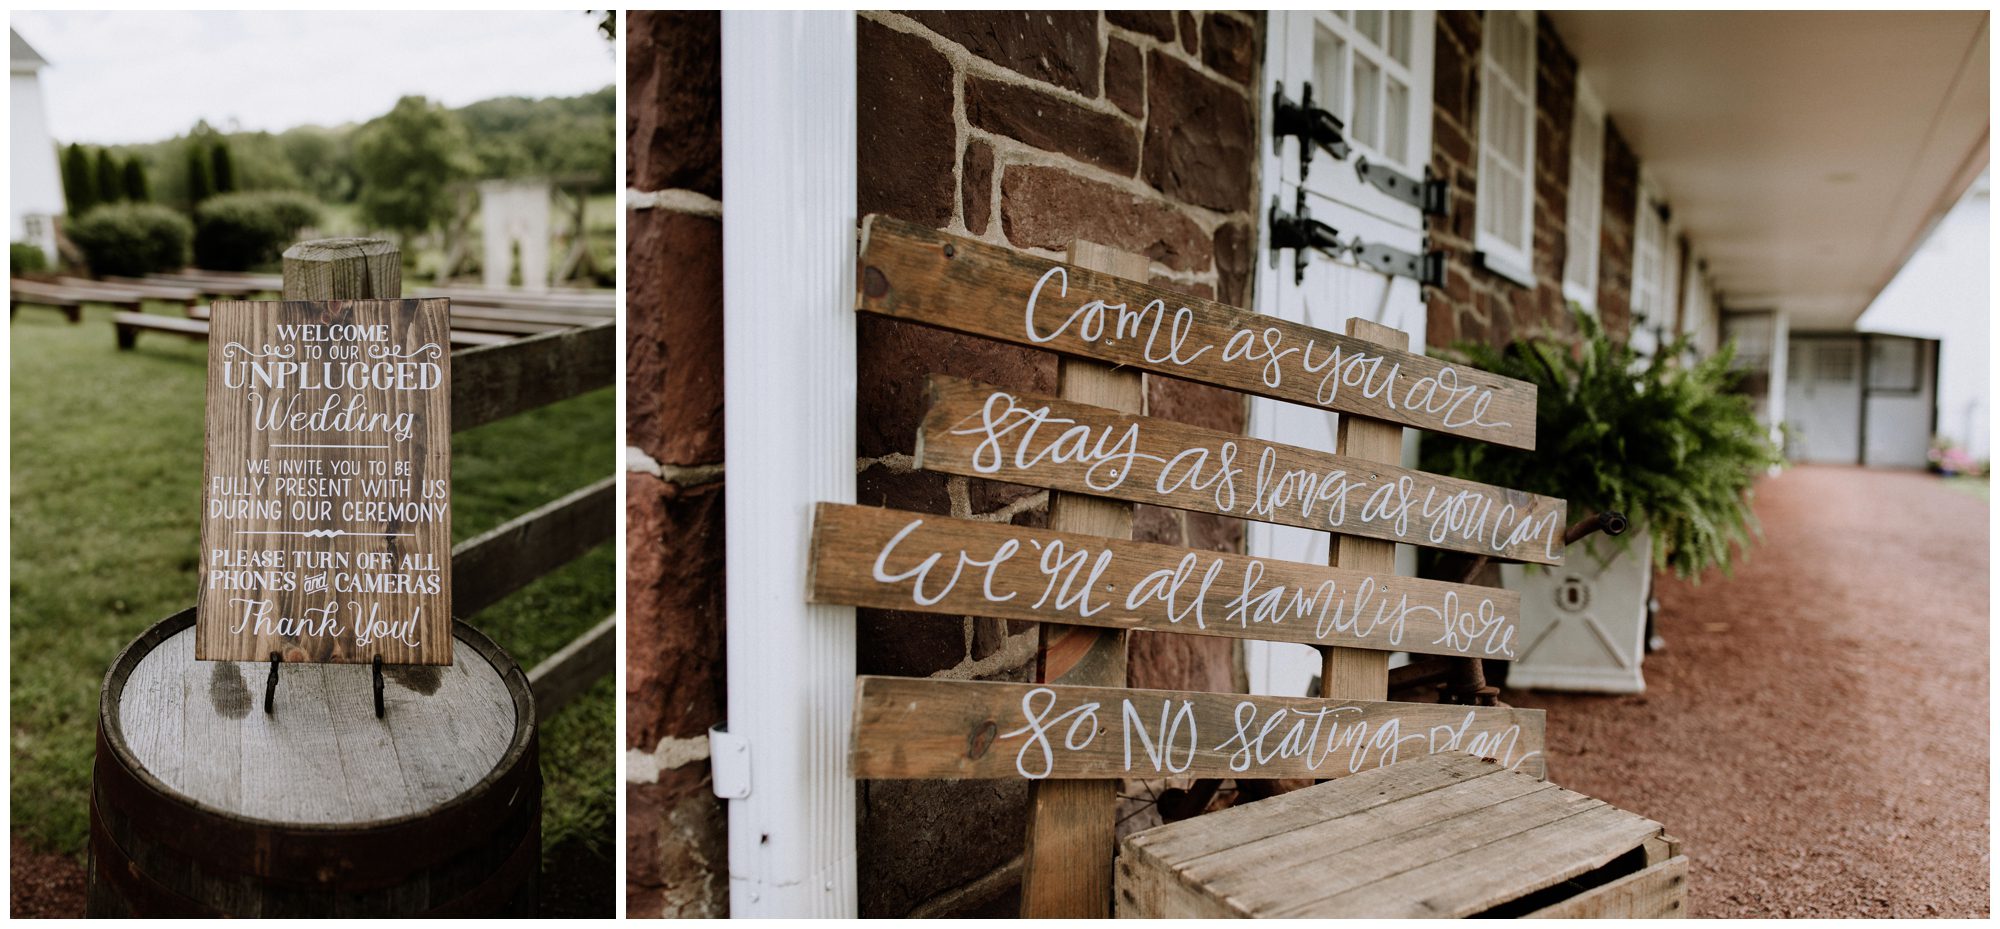 WELCOME
TO OUR
UNPLUGGED
Wedding
WE INVITE YOU TO BE
FULLY PRESENT WITH US
DURING OUR CEREMONY
PLEASE TURN OFF ALL
PHONES and CAMERAS
Thank You!
Come as you are
stay as long as you can
We're all family here.
so NO seating plan